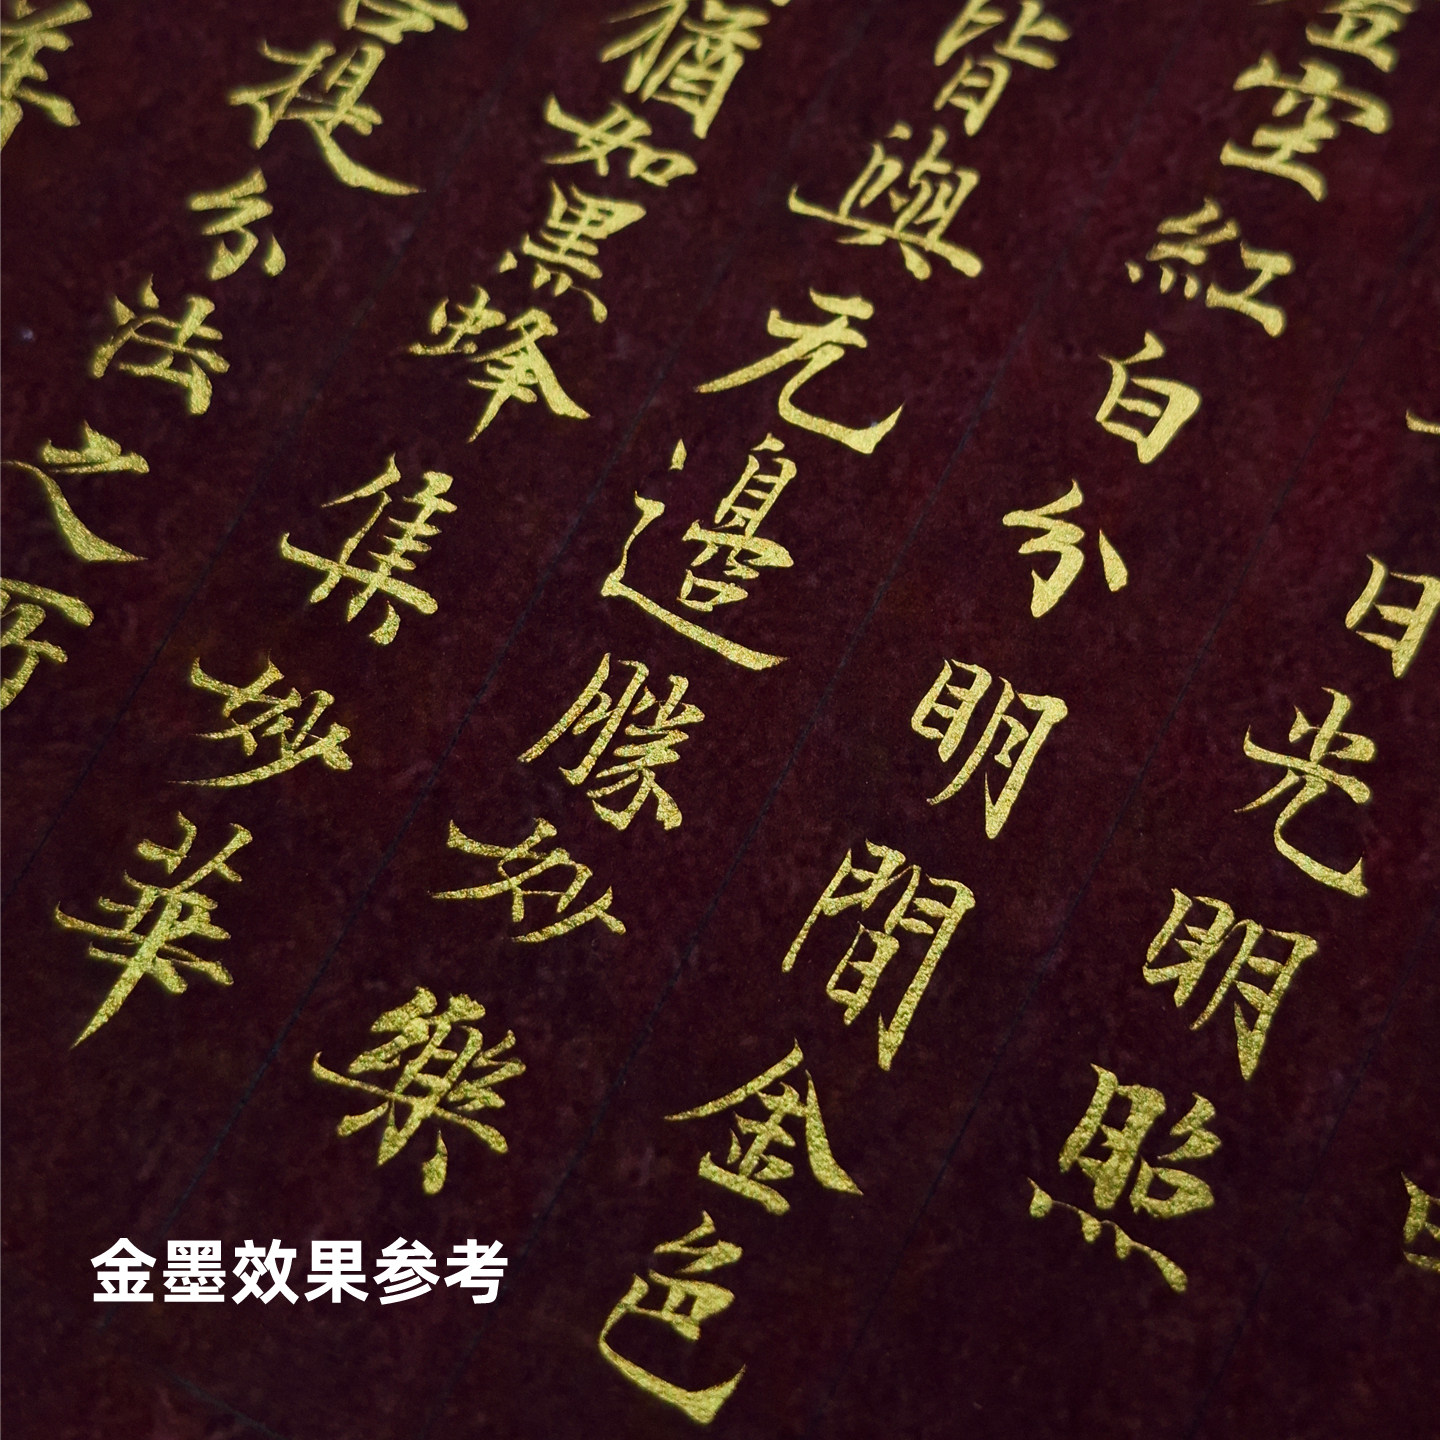 日光明照
空紅白分明間金色
皆與无邊勝妙樂
猶如黑蜂集妙華
提分法之所
金墨效果参考